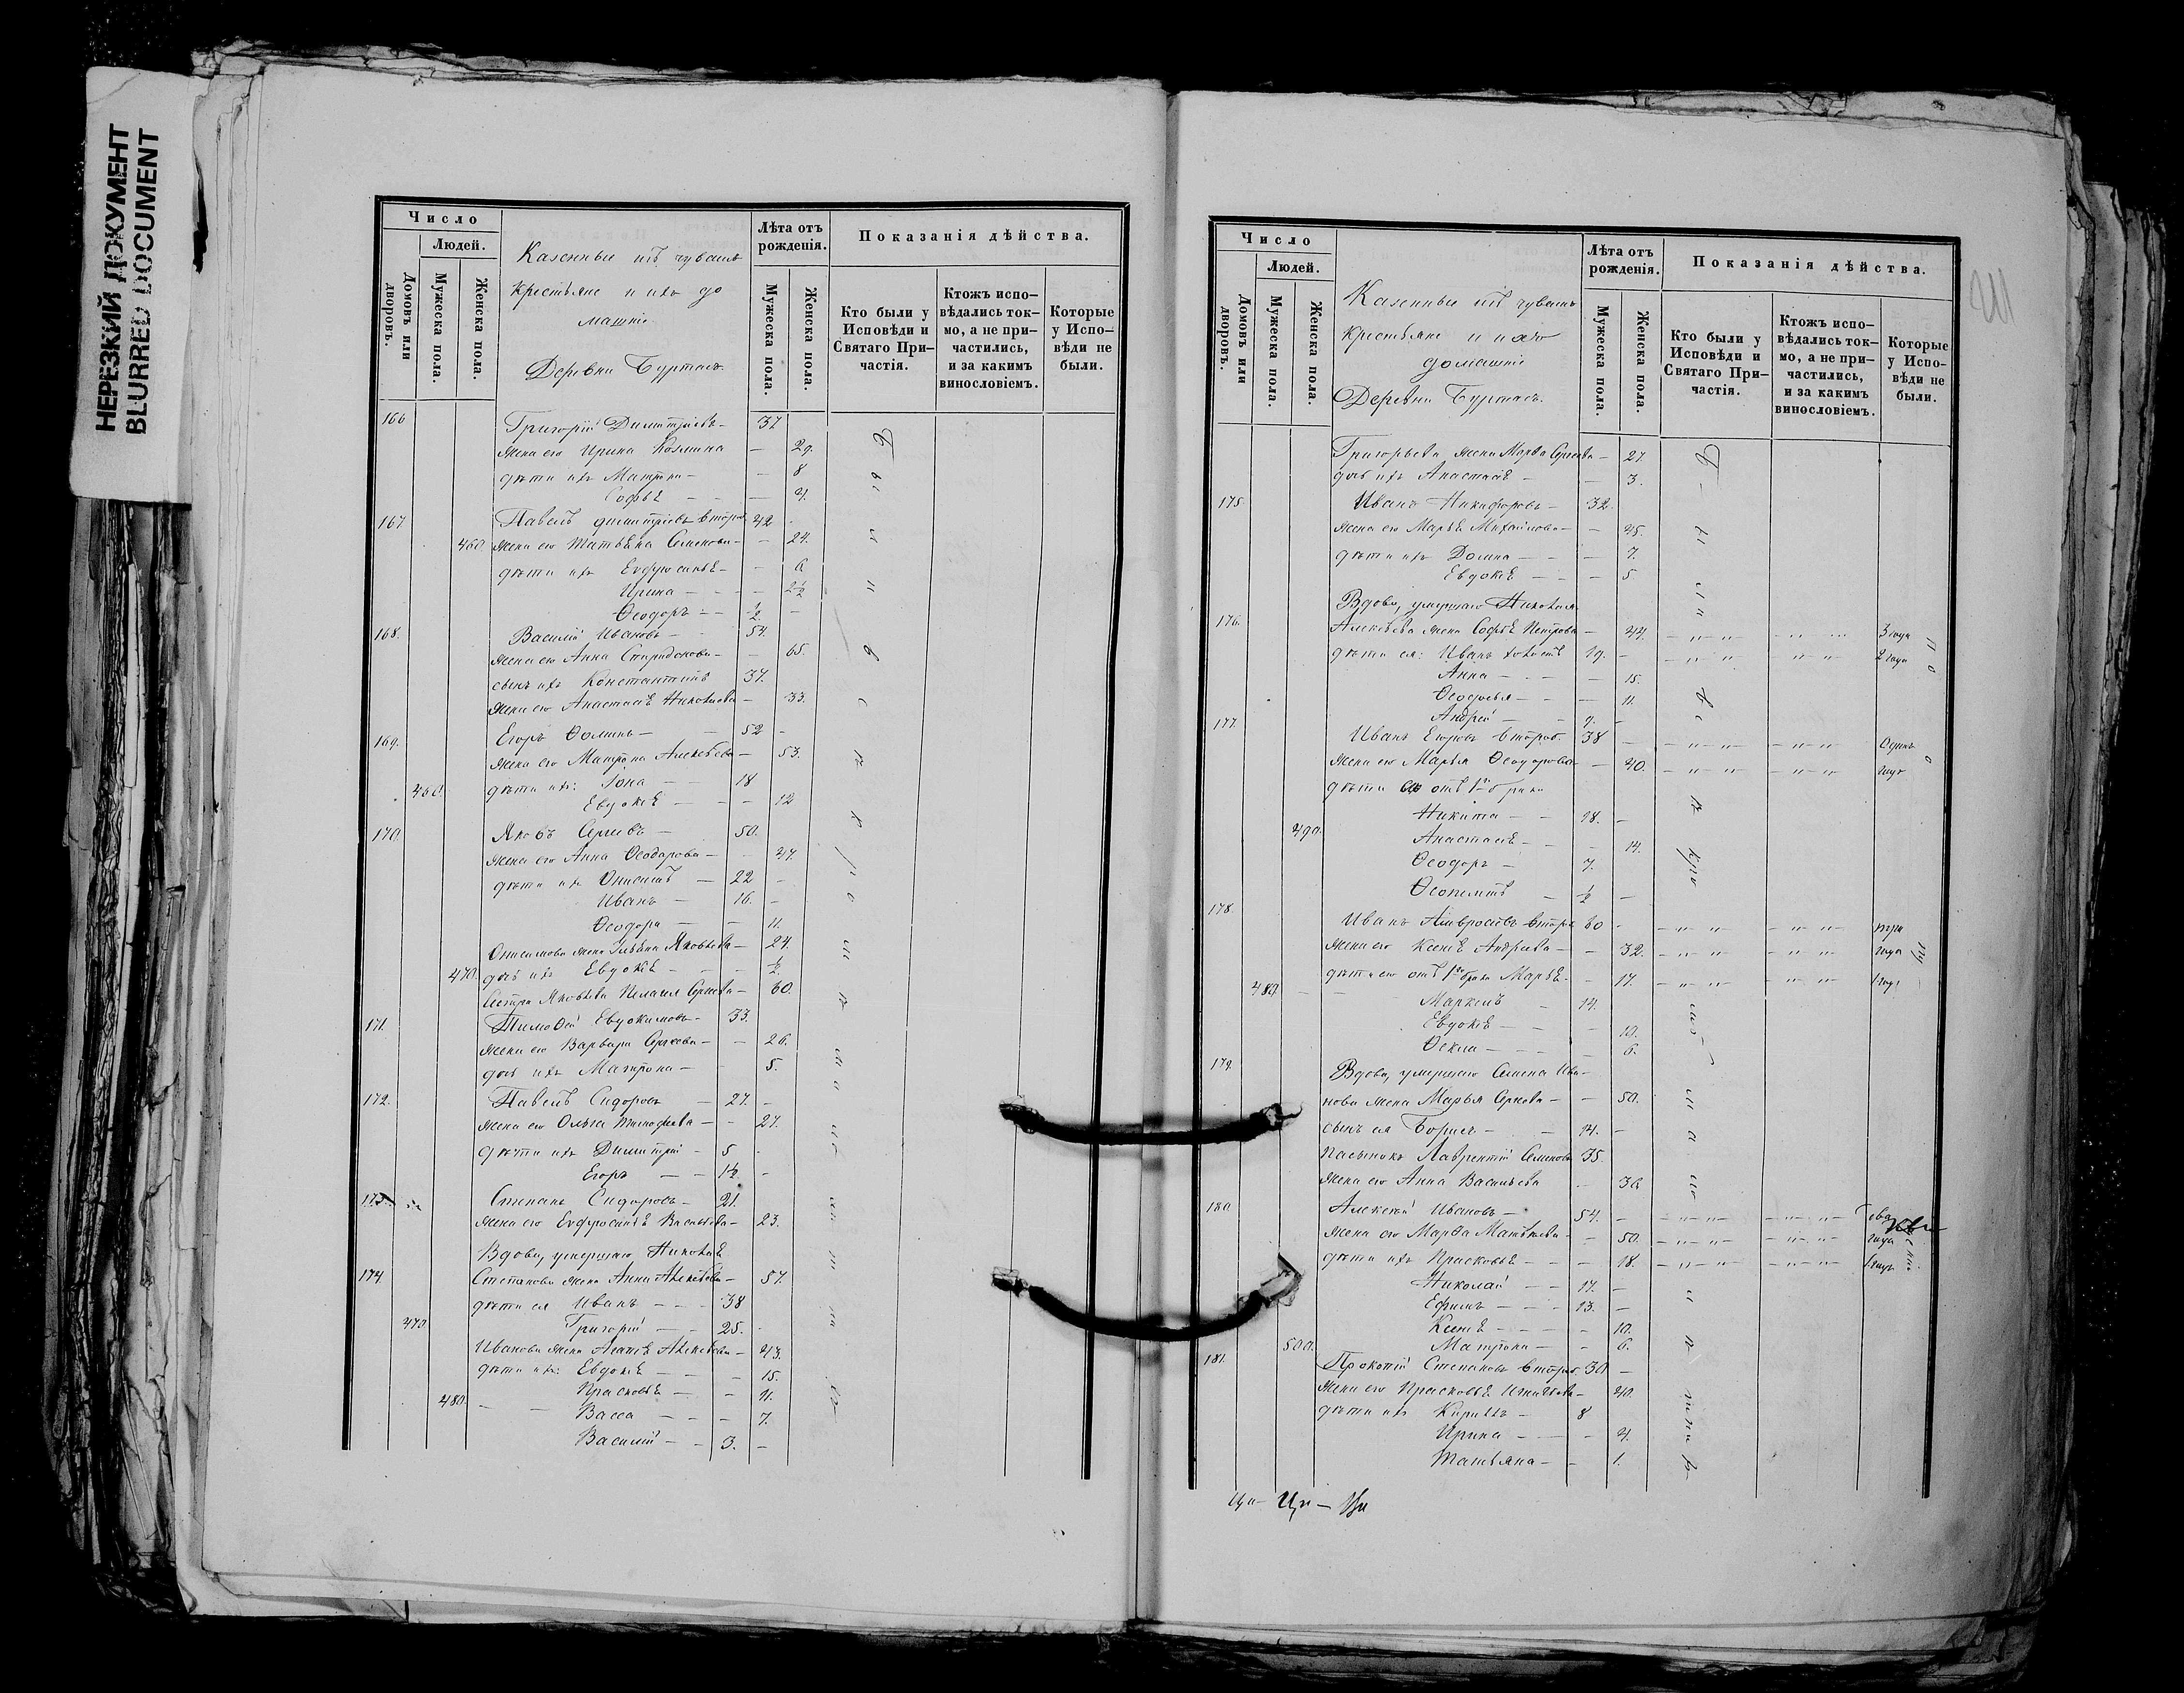 НЕРЕЗКИЙ ДОКУМЕНТ
BLURRED DOCUMENT
Число
Людей.
Домовъ или дворовъ.
Мужеска пола.
Женска пола.
Казенные изъ чувашъ
крестьяне и ихъ до
машніе
Деревни Буртасъ.
Лѣта отъ рожденія.
Мужеска пола.
Женска пола.
Показанія дѣйства.
Кто были у Исповѣди и Святаго При-частія.
Ктожъ испо-вѣдались ток-мо, а не при-частились, и за какимъ винословіемъ.
Которые у Испо-вѣди не были.
166 Григорій Димитріевъ - 37
жена его Ирина Козмина - 29.
дѣти ихъ Матрона - - 8
Софья - - 4.
167. Павелъ Димитріевъ вторый 42
460. жена его Татьяна Семенова - - 24.
дѣти ихъ Евфросинья - - 6
Ирина - - - 2½
Ѳеодоръ - - ½ -
168. Василій Ивановъ - 54.
жена его Анна Спиридонова - - 65.
сынъ ихъ Константинъ 37.
жена его Анастасія Николаева - 33.
169. Егоръ Ѳоминъ - - 52 -
жена его Матрона Алексѣева - 53.
460. дѣти ихъ: Іона - - 18
Евдокія - - - 12
170. Яковъ Сергѣевъ - 50.
жена его Анна Ѳеодорова - - 47.
дѣти ихъ Онисимъ - 22 -
Иванъ - 16. -
Ѳеодора - - 11.
Онисимова жена Ульяна Яковлева - 24.
470. дочь ихъ Евдокія - - - ½.
Сестра Яковлева Пелагея Сергѣева - 60.
171. Тимоѳей Евдокимовъ - 33.
жена его Варвара Сергѣева - - 26.
дочь ихъ Матрона - - 5.
172. Павелъ Сидоровъ - 27. -
жена его Ольга Тимофеева - - 27.
дѣти ихъ Димитрій - 5 -
Егоръ - - 1½ -
173. Степанъ Сидоровъ - 21.
жена его Евфросинья Васильева - 23.
Вдова, умершаго Николая
174. Степанова жена Анна Алексѣева - 57.
дѣти ея Иванъ - - - 38
470 Григорій - - 25. -
Иванова жена Агафія Алексѣева - 43.
дѣти ихъ: Евдокія - - - 15.
Прасковья - - 11.
480. - - Васса - - - 7.
Василій - - 3. -
Число
Людей.
Домовъ или дворовъ.
Мужеска пола.
Женска пола.
Казенные изъ чувашъ
крестьяне и ихъ
домашніе
Деревни Буртасъ.
Лѣта отъ рожденія.
Мужеска пола.
Женска пола.
Показанія дѣйства.
Кто были у Исповѣди и Святаго При-частія.
Ктожъ испо-вѣдались ток-мо, а не при-частились, и за какимъ винословіемъ.
Которые у Испо-вѣди не были.
Григорьева жена Марѳа Сергѣева - 27.
дочь ихъ Анастасія - - 3.
175. Иванъ Никифоровъ - 32.
жена его Марья Михайлова - - 45.
дѣти ихъ Домна - - - 7.
Евдокія - - - 5
Вдова, умершаго Николая
176. Алексѣева жена Софья Петрова - 44. 3 года
дѣти ея: Иванъ холостъ 19. - 2 года
Анна - - - 15.
Ѳеодосья - - - 11.
Андрей - - 9. -
177. Иванъ Егоровъ вторый 38 - Одинъ
жена его Марья Ѳеодорова - 40. годъ
дѣти отъ 1го брака
Никита - - 18. -
490. Анастасія - - - 14.
Ѳеодоръ - 7.
Ѳеопемптъ - ½ -
178. Иванъ Амвросіевъ вторый 60 - три
жена его Ксенія Андреева - - 32. года
дѣти его отъ 1го брака Марья - - 17. 1 годъ
480. - - Маркелъ - 14.
Евдокія - - - 10.
Ѳекла - - - 6.
179. Вдова, умершаго Семена Ива-
нова жена Марья Сергѣева - - 50.
сынъ ея Борисъ - - 14. -
пасынокъ Лаврентій Семеновъ 35.
жена его Анна Васильева - 36
180. Алексѣй Ивановъ - 54. - два
жена его Марѳа Матвѣева - - 50. года
дѣти ихъ Прасковья - - - 18. 1 годъ
Николай - - 17. -
Ефимъ - - - 13. -
Ксенія - - - - 10.
500. Матрона - - 6.
181. Прокопій Степановъ вторый 30 -
жена его Прасковья Игнатьева - 40.
дѣти ихъ Кириллъ - 8
Ирина - - - 4.
Татьяна - - 1.